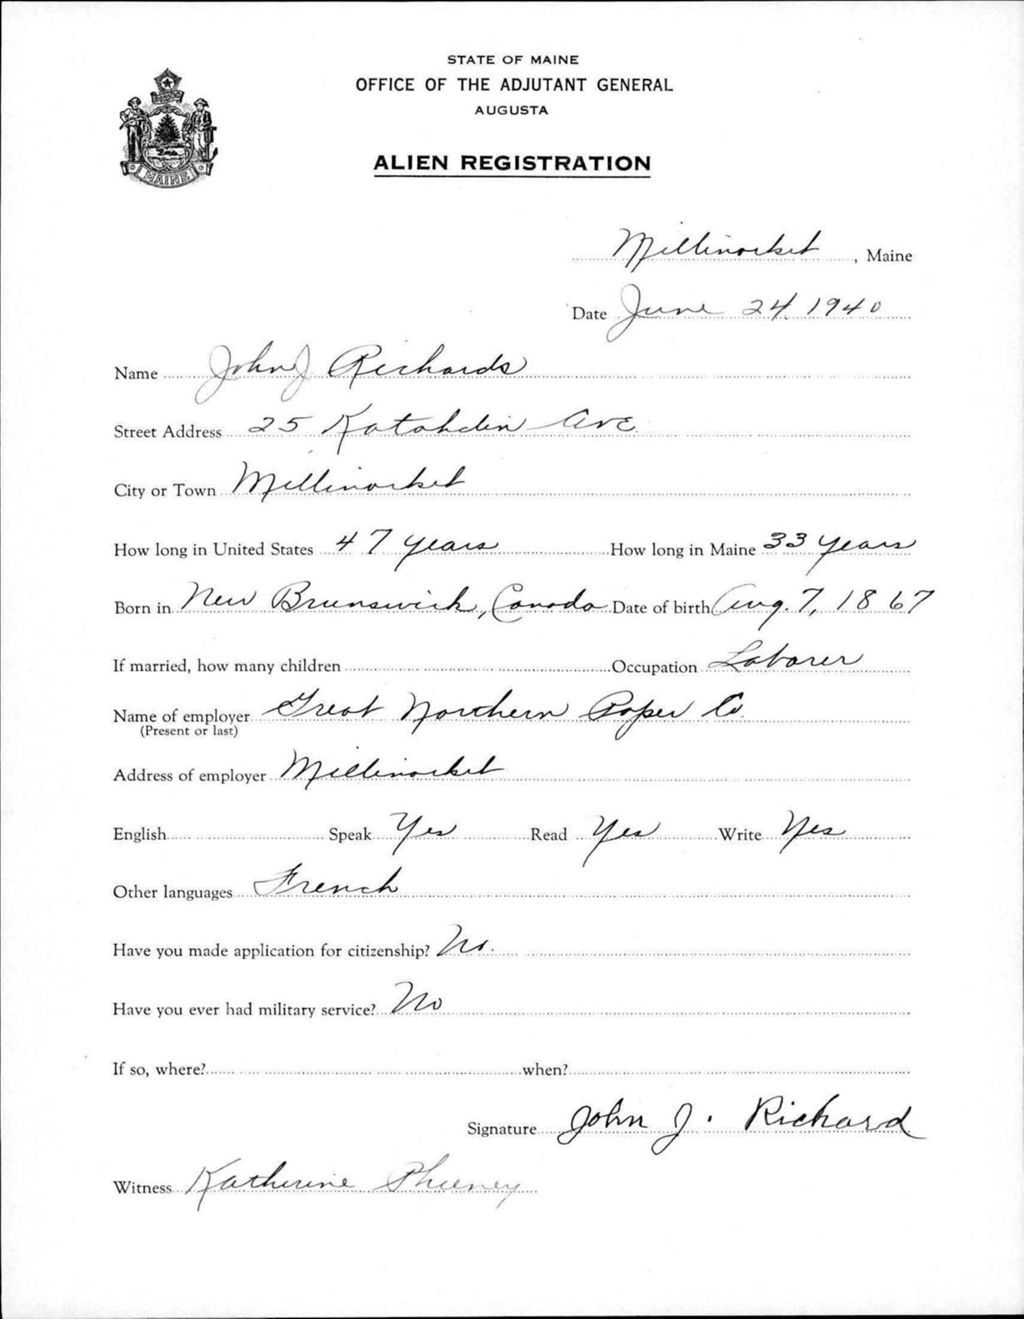 STATE OF MAINE
OFFICE OF THE ADJUTANT GENERAL
AUGUSTA
ALIEN REGISTRATION
MAINE
Millinocket, Maine
Date June 24, 1940
Name John J Richards
Street Address 25 Katahdin Ave.
City or Town Millinocket
How long in United States 47 years How long in Maine 33 years
Born in New Brunswick, Canada Date of birth Aug. 7, 1867
If married, how many children Occupation Laborer
Name of employer Great Northern Paper Co.
(Present or last)
Address of employer Millinocket
English Speak Yes Read Yes Write Yes
Other languages French
Have you made application for citizenship? No.
Have you ever had military service? No
If so, where? when?
Signature John J. Richard
Witness Katherine Pheeney